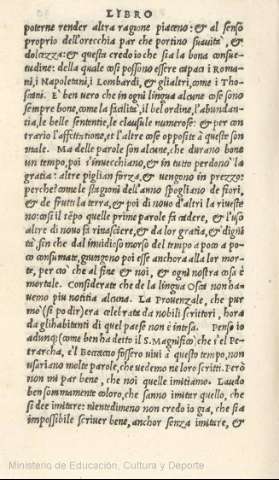 LIBRO
poterne render altra ragione piaceno: & al senso
proprio dell'orecchia par che portino suauità, &
dolcezza: & questa credo io che sia la bona consue-
tudine: della quale così possono essere capaci i Roma-
ni, i Napoletani, i Lombardi, & gli altri, come i Tho-
scani. E' ben uero che in ogni lingua alcune cose sono
sempre bone, come la facilità, il bel ordine, l'abundan-
tia, le belle sententie, le clausule numerose: & per con
trario l'affettatione, et l'altre cose opposite à queste son
male. Ma delle parole son alcune, che durano bone
un tempo, poi s'inuecchiano, & in tutto perdono la
gratia: altre piglian forza, & uengono in prezzo:
perche come le stagioni dell'anno spogliano de fiori,
& de frutti la terra, & poi di nouo d'altri la riueste
no: così il tēpo quelle prime parole fa cadere, & l'uso
altre di nouo fa rinascere, et da lor gratia, & digni
tà, sin che dal inuidioso morso del tempo à poco à po-
co consumate, giungono poi esse anchora alla lor mor-
te, perciò che al fine & noi, & ogni nostra cosa è
mortale. Considerate che de la lingua Osca non ha-
uemo piu notitia alcuna. La Prouenzale, che pur
mò (si po dir) era celebrata da nobili scrittori, hora
da gli habitanti di quel paese non è intesa. Penso io
adunq; (come ben ha detto il S. Magnifico) che s'el Pe-
trarcha, e'l Boccaccio fossero uiui à questo tempo, non
usariano molte parole, che uedemo ne loro scritti. Però
non mi par bene, che noi quelle imitiamo. Laudo
ben sommamente coloro, che sanno imitar quello, che
si dee imitare: nientedimeno non credo io già, che sia
impossibile scriuer bene, anchor senza imitare, &
Ministerio de Educación, Cultura y Deporte